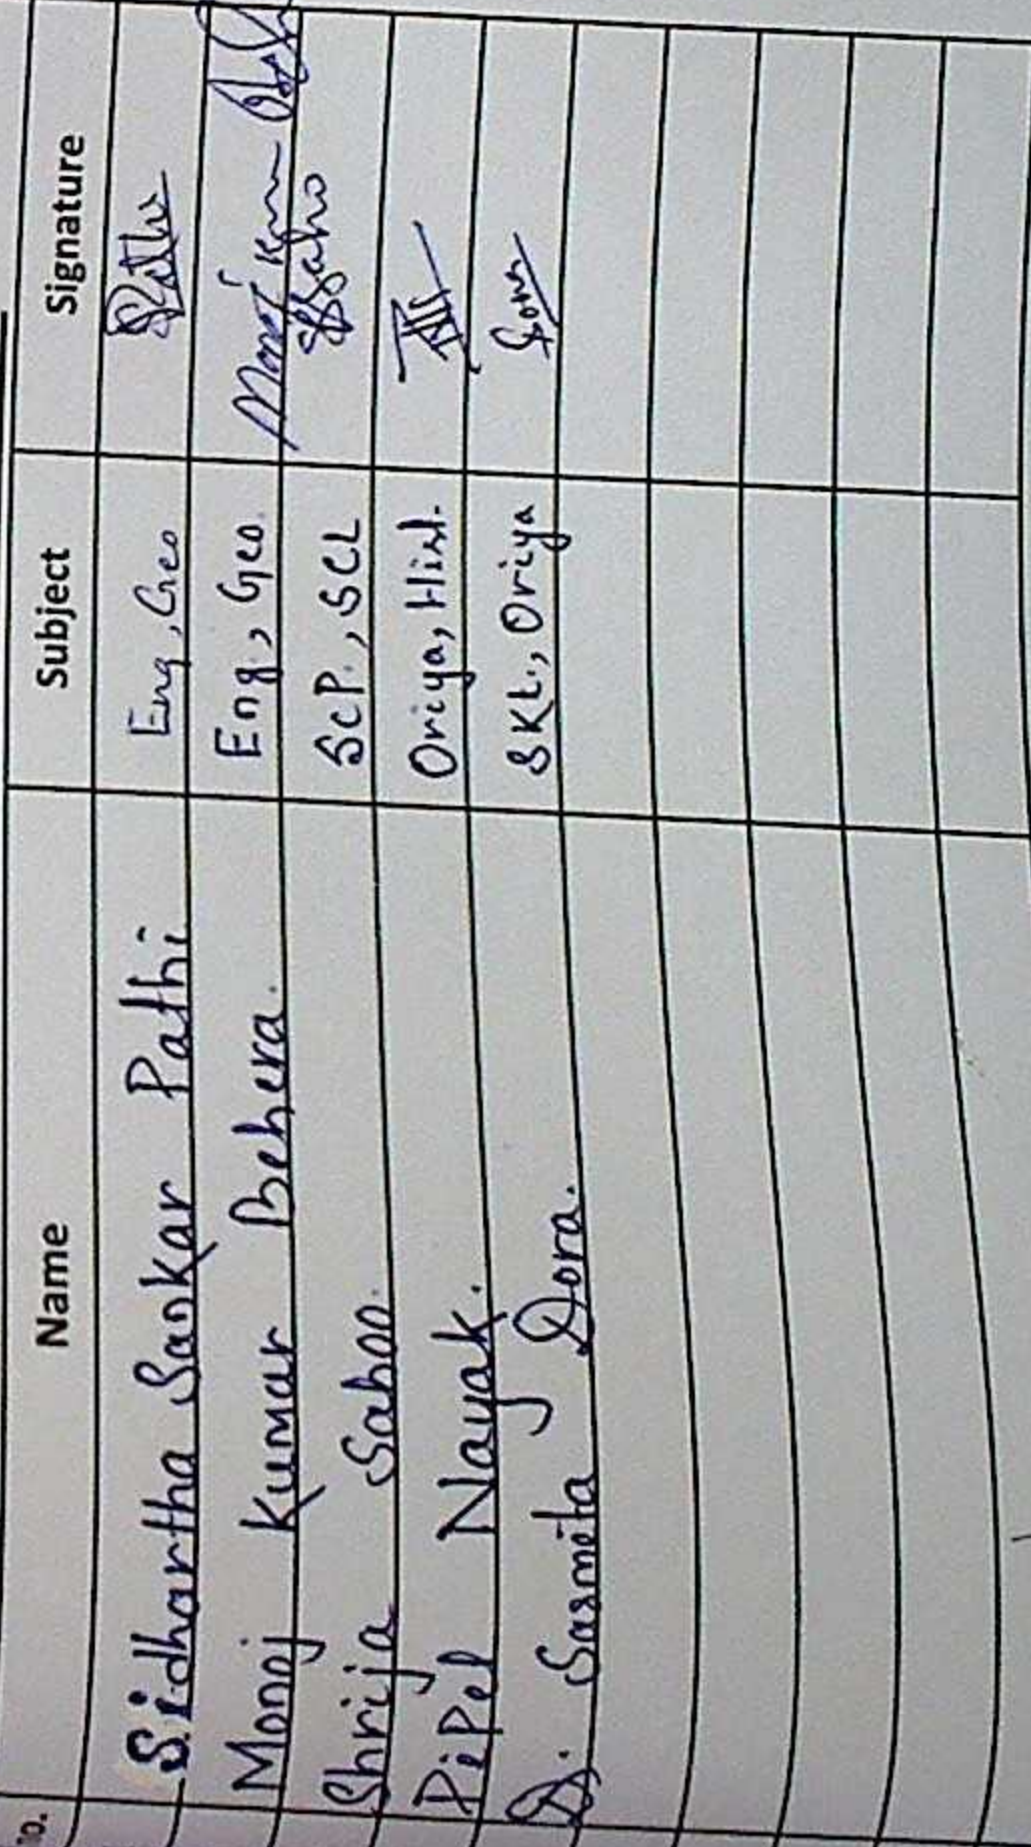 No. Name Subject Signature
Sidhartha Sankar Pathi Eng, Geo
Manoj Kumar Behera. Eng., Geo. Manoj Kumar
Shrija Sahoo. SCP., SCL SSahoo
PiPel Nayak. Oriya, Hist.
D. Sasmita Dora. SKL., Oriya